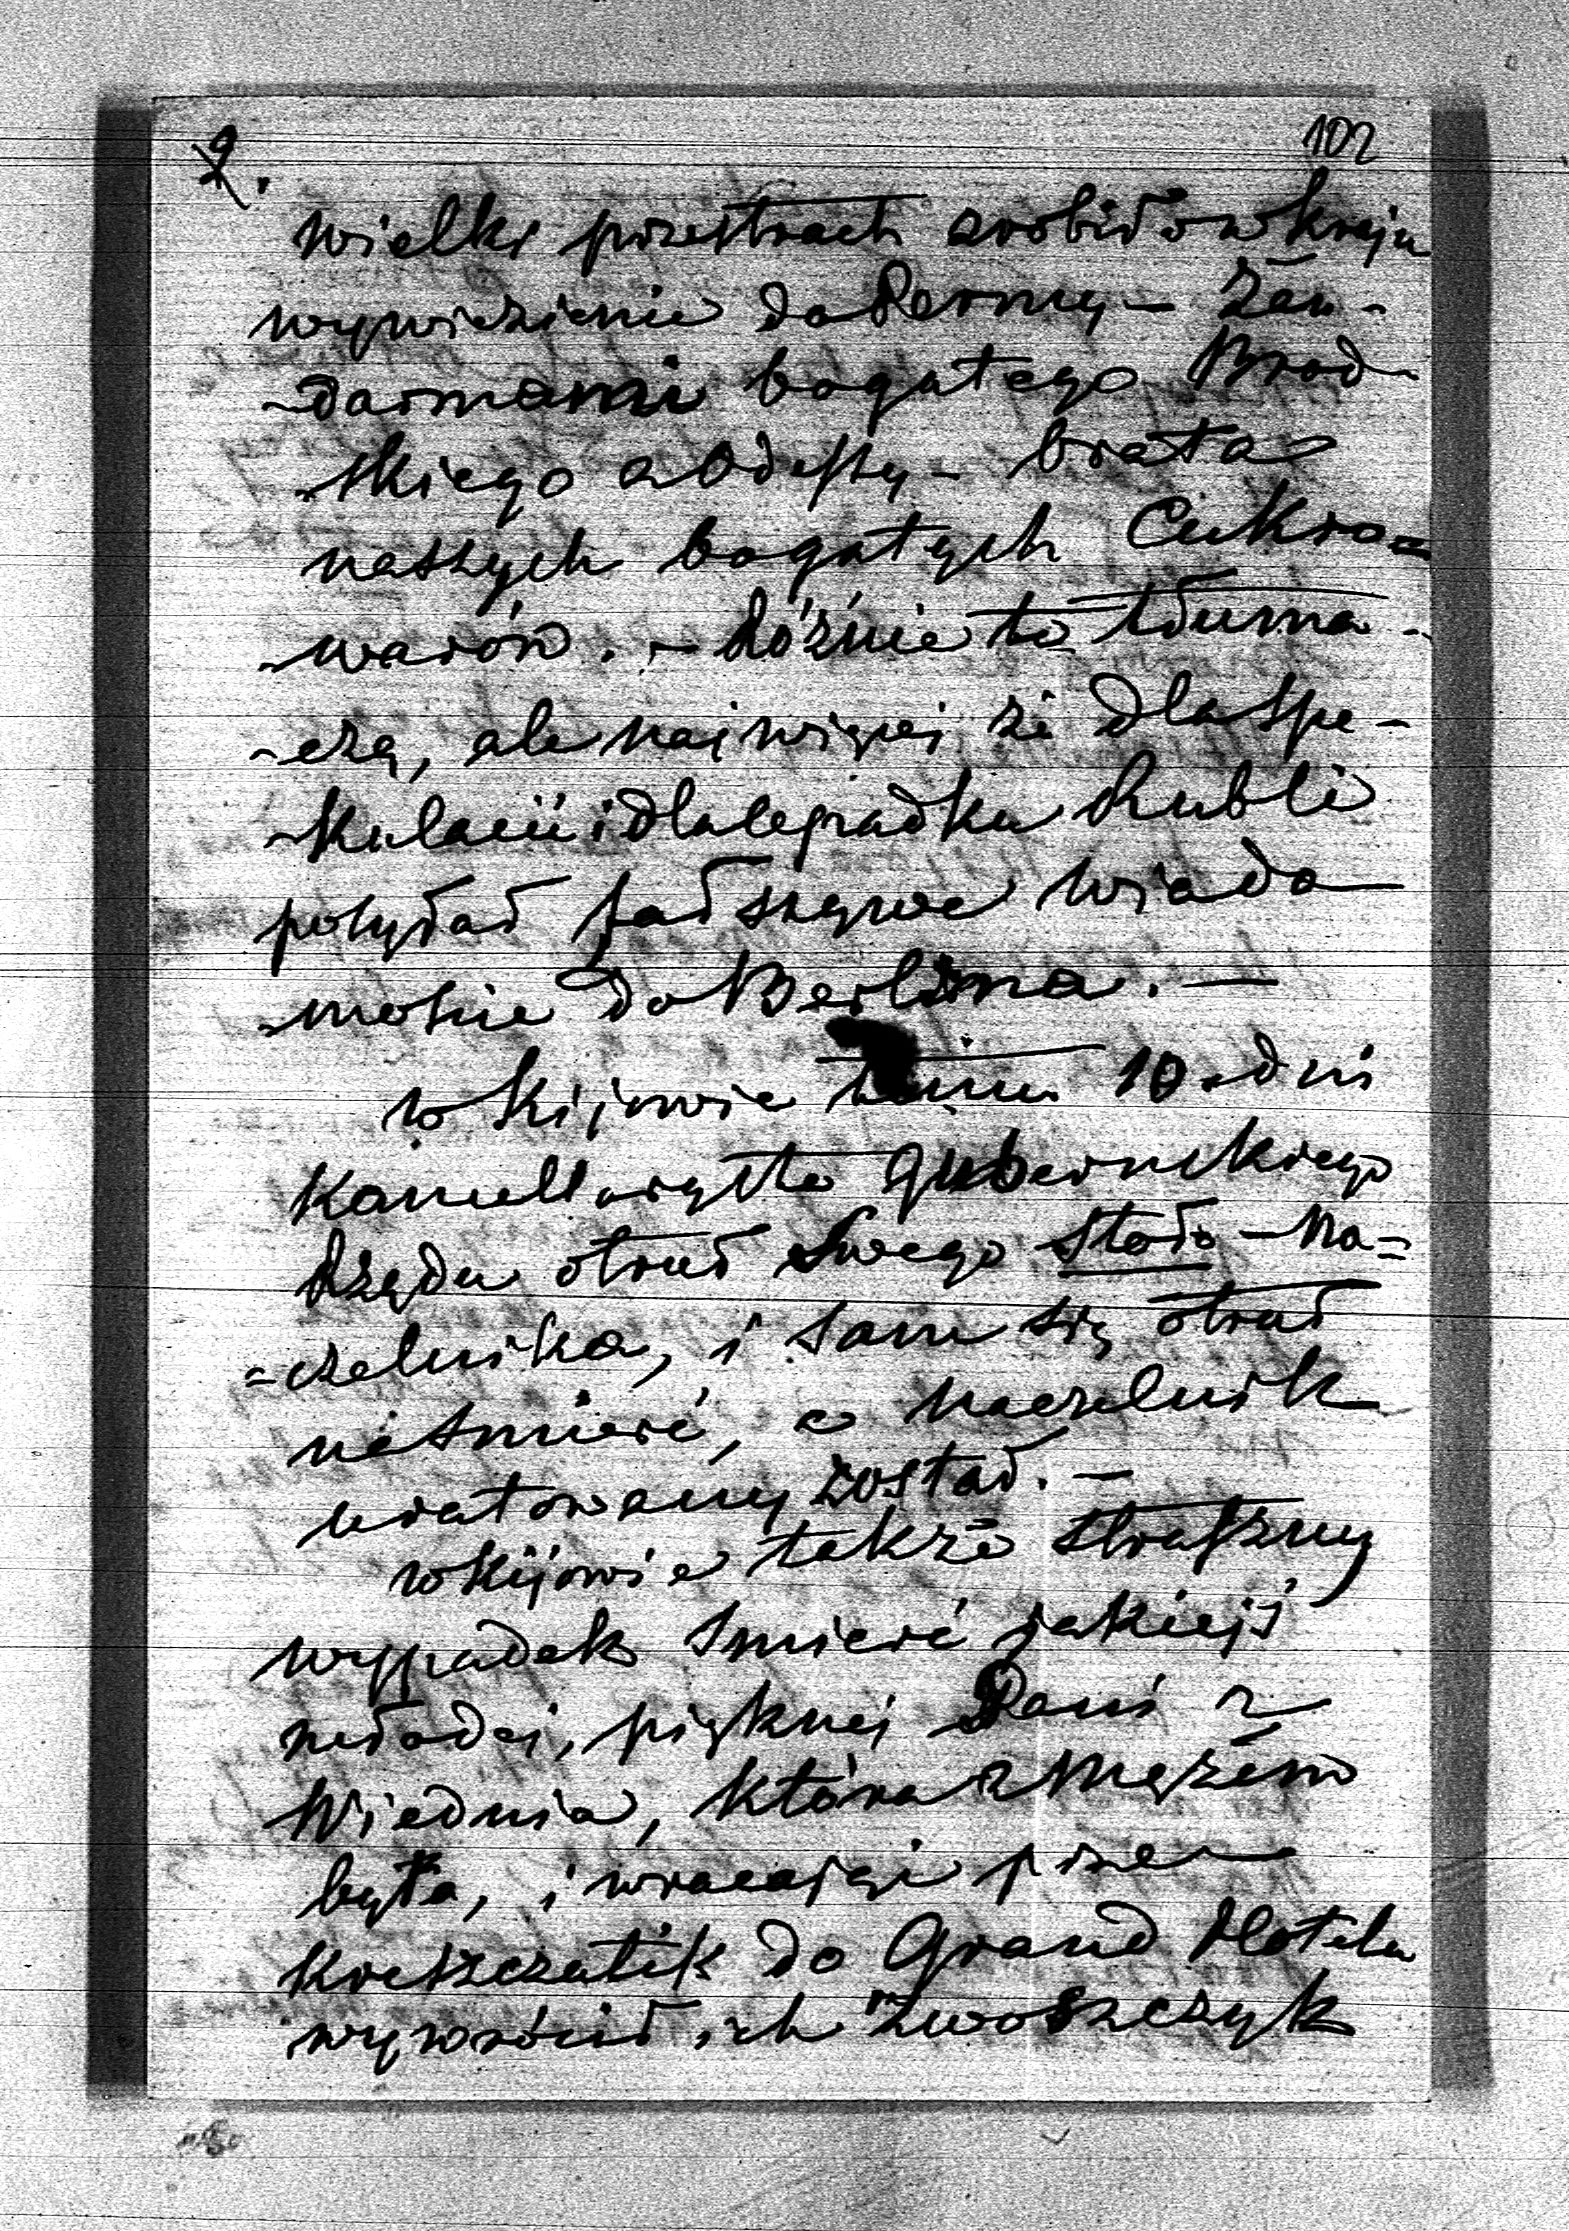 2.
102
wielki przestrach zrobiło w kraju
wywiezienie do Permy – Żan-
-darmami bogatego Brod-
-skiego z Odessy – brata
naszych bogatych Cukro=
-warów. – Różnie to tłuma-
-czą, ale najwięcej że dla spe-
-kulacii i dla upadku Rubli
posyłał fałszywe wiado-
-moście do Berlina. –
w Kijowie temu 10 dni
Kancellarzysta Gubernskiego
Rządu otruł Swego Stoło – Na=
=czelnika, i sam się otruł
na śmierć, a Naczelnik
uratowany został. –
w Kijowie także straszny
wypadek śmierć jakiejś
młodej, pięknej Pani z
Wiednia, która z Mężem
była, i wracając przez
Kreszczatik do Grand Hotelu
wywrócił ich Zwoszczyk